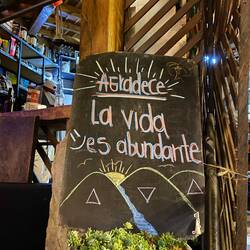 AGRADECE
La vida
es abundante